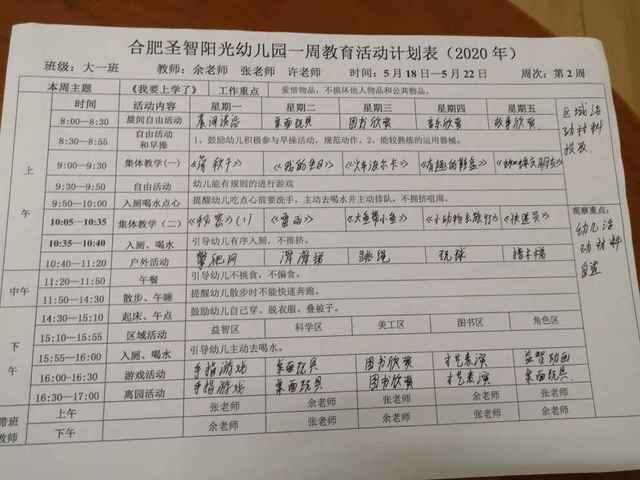 合肥圣智阳光幼儿园一周教育活动计划表（2020 年）
班级：大一班 教师：余老师 张老师 许老师 时间：5 月 18 日—5 月 22 日 周次：第 2 周
本周主题 《我要上学了》 工作重点 爱惜物品，不损坏他人物品和公共物品。
时间 活动内容 星期一 星期二 星期三 星期四 星期五
8:00—8:30 晨间自由活动 晨间谈话 桌面玩具 图书欣赏 音乐欣赏 故事欣赏
区域活动材料投放
上午
8:30—8:55 自由活动和早操 1、鼓励幼儿积极参与早操活动，规范动作。2、能较熟练的运用器械。
9:00—9:30 集体教学（一）
9:30—9:50 自由活动 幼儿能有规则的进行游戏
9:50—10:00 入厕喝水点心 提醒幼儿吃点心前要洗手，主动去喝水并主动排队，不拥挤喧闹。
10:05—10:35 集体教学（二） 《大鱼帮小鱼》 《小动物去旅行》
观察重点：
幼儿活动材料
10:35—10:40 入厕、喝水 引导幼儿有序入厕，不推挤。
10:40—11:20 户外活动 攀爬网 滑滑梯 跳绳 玩球
中午
11:20—11:50 午餐 引导幼儿不挑食，不偏食。
11:50—14:30 散步、午睡 提醒幼儿散步时不能快速奔跑。
下午
14:30—15:10 起床、午点 鼓励幼儿自己穿、脱衣服、叠被子。
15:10—15:55 区域活动 益智区 科学区 美工区 图书区 角色区
15:55—16:00 入厕、喝水 引导幼儿主动去喝水。
16:00—16:30 游戏活动 手指游戏 桌面玩具 图书欣赏 才艺表演 益智动画
16:30—17:00 离园活动 手指游戏 桌面玩具 图书欣赏 才艺表演 桌面玩具
带班教师
上午 张老师 余老师 张老师 余老师 张老师
下午 余老师 张老师 余老师 张老师 余老师